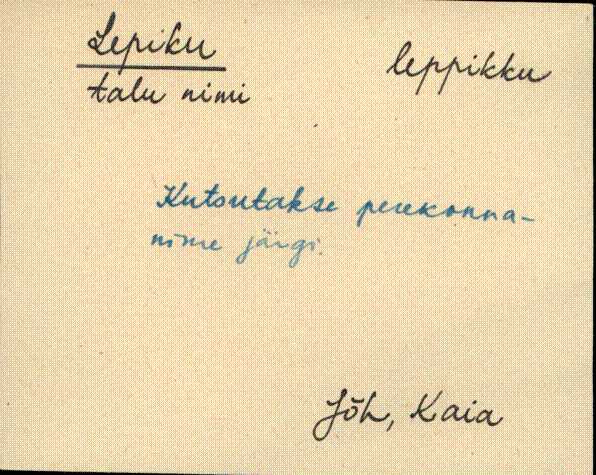 Lepiku
leppikku
talu nimi
Kutsutakse perekonna-
nime järgi.
Jõh, Kaia